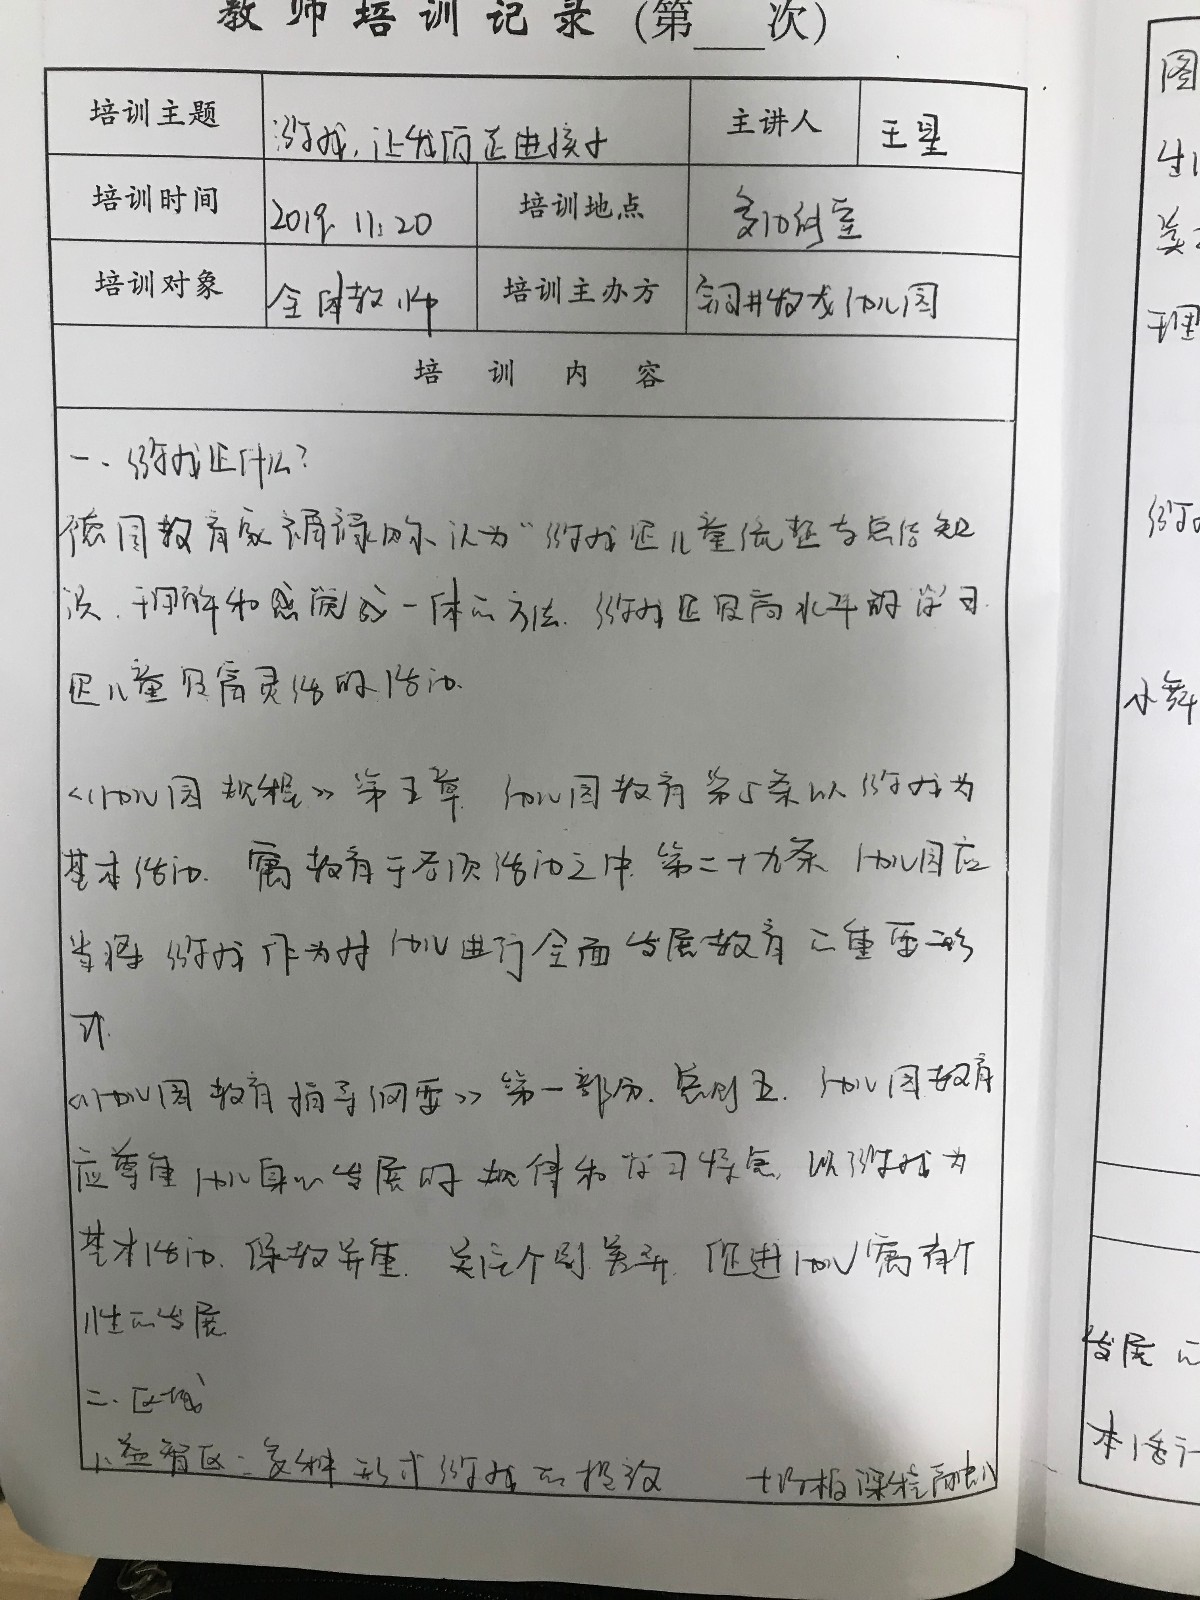 教师培训记录(第___次)
培训主题 游戏,让我们走进孩子 主讲人 王星
培训时间 2019. 11. 20 培训地点 多功能室
培训对象 全体教师 培训主办方 铜井牧龙幼儿园
培训内容
一、游戏是什么?
德国教育家福禄贝尔认为"游戏是儿童
理解和感觉成一体的方法. 游戏是最高水平的学习.
是儿童最富灵活的活动.
《幼儿园规程》第五章. 幼儿园教育第5条以游戏为
基本活动. 寓教育于各项活动之中. 第二十九条 幼儿园应
当将游戏作为对幼儿进行全面发展教育的重要形
式.
《幼儿园教育指导纲要》第一部分. 总则五. 幼儿园教育
应尊重幼儿身心发展的规律和学习特点, 以游戏为
基本活动. 保教并重. 关注个别差异. 促进幼儿富有个
性的发展
二. 区域
1. 益智区: 多种形式游戏的投放
图
游戏
小舞
发展的
本活